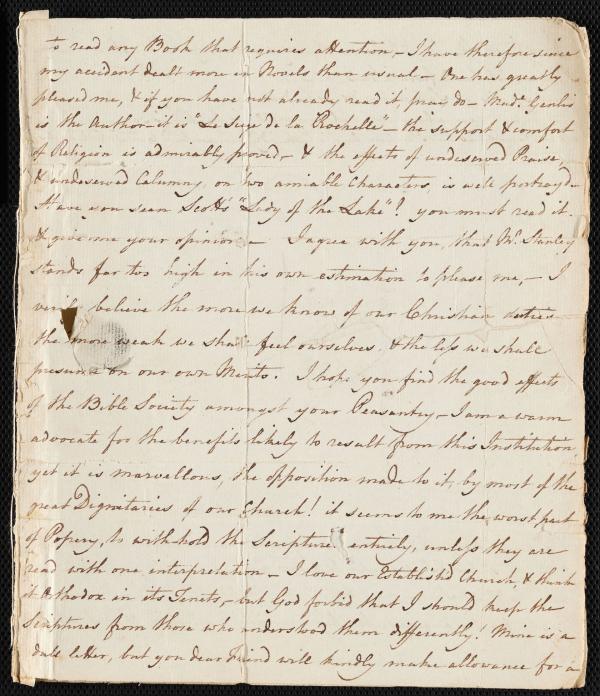 to read any Book that requires attention,– I have therefore since
my accident dealt more in Novels than usual – One has greatly
pleased me, & if you have not already read it, pray do – Mad.e Genlis
is the Author – it is "Le Siege de la Rochelle" – the support & comfort
of Religion is admirably proved,– & the effects of undeserved Praise,
& undeserved Calumny, on two amiable Characters, is well portrayd –
Have you seen Scott's "Lady of the Lake"? you must read it.
& give me your opinion – I agree with you, that Mr. Stanley
stands far too high in his own estimation to please me,– I
verily believe the more we know of our Christian duties
the more weak we shall feel ourselves, & the less we shall
presume on our own Merits. I hope you find the good effects
of the Bible Society amongst your Peasantry – I am a warm
advocate for the benefits likely to result from this Institution,
yet it is marvellous, the opposition made to it, by most of the
great Dignitaries of our Church! it seems to me the worst part
of Popery, to with-hold the Scripture entirely, unless they are
read with one interpretation – I love our Established Church, & think
it Orthodox in its Tenets,– but God forbid that I should keep the
Scriptures from those who understood them differently! Mine is a
dull letter, but you dear Friend will kindly make allowance for a